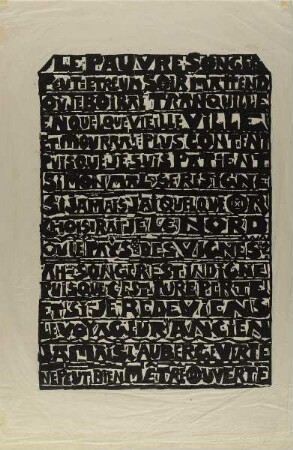 LE PAUVRE SONGE
PEUT ETRE UN SOIR M'ATTEND
OU JE BOIRAI TRANQUILLE
EN QUELQUE VIEILLE VILLE
ET MOURRAI PLUS CONTENT
PUISQUE JE SUIS PATIENT
SI MON MAL SE RESIGNE
SI JAMAIS J'AI QUELQUE OR
CHOISIRAI JE LE NORD
OU LE PAYS DES VIGNES
AH SONGER EST INDIGNE
PUISQUE C'EST PURE PERTE
ET SI JE REDEVIENS
LE VOYAGEUR ANCIEN
JAMAIS L'AUBERGE VERTE
NE PEUT BIEN M'ETRE OUVERTE